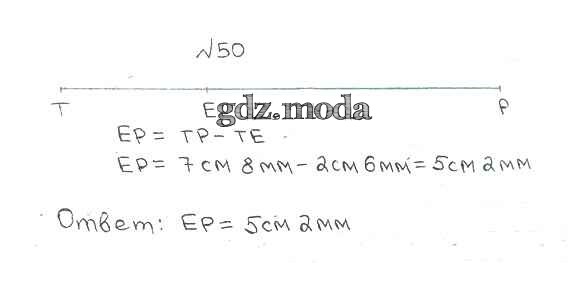 №50
T E P
gdz.moda
EP = TP - TE
EP = 7см 8мм - 2см 6мм = 5см 2мм
Ответ: EP = 5см 2мм